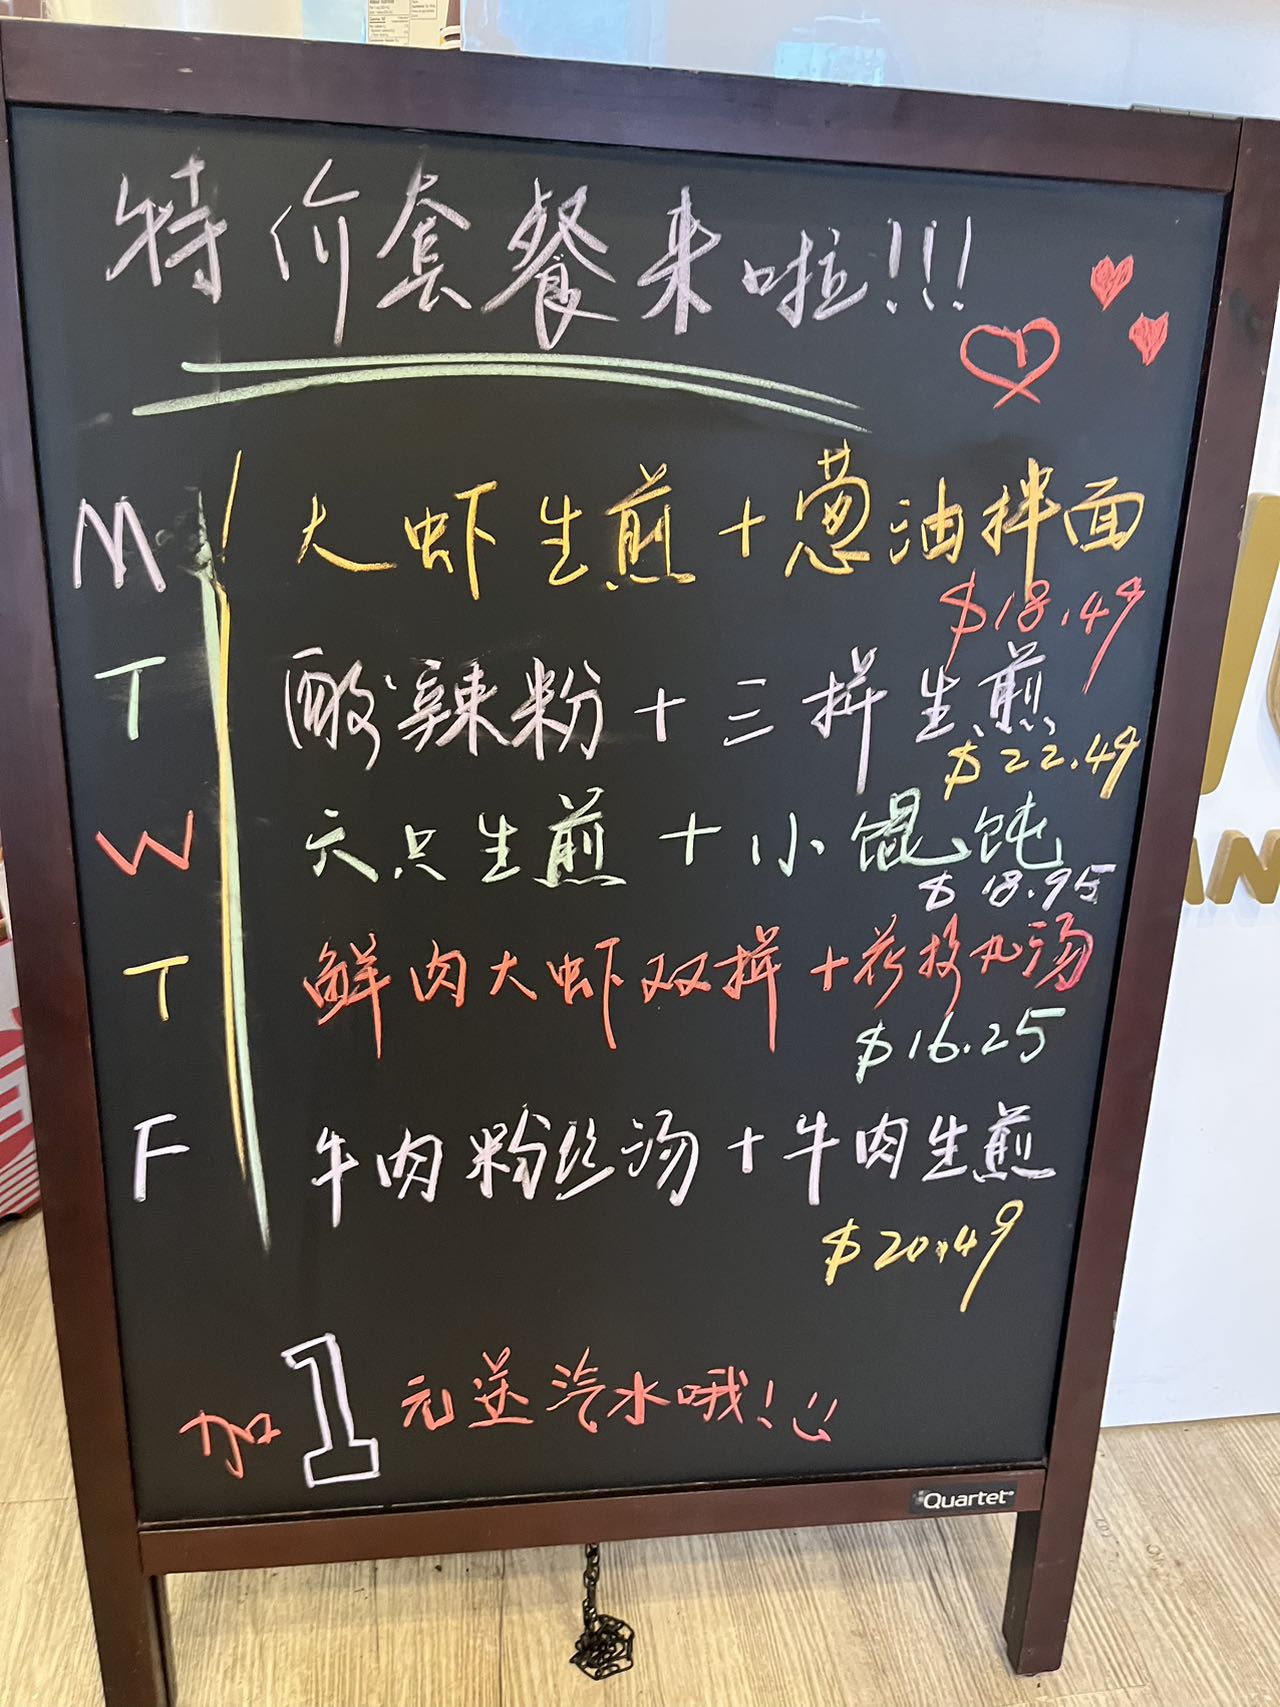 特价套餐来啦!!!
M 大虾生煎+葱油拌面
$18.49
T 酸辣粉+三拼生煎
$22.49
W 六只生煎+小馄饨
$18.95
T 鲜肉大虾双拼+花枝丸汤
$16.25
F 牛肉粉丝汤+牛肉生煎
$20.49
加1元送汽水哦!
Quartet
AN